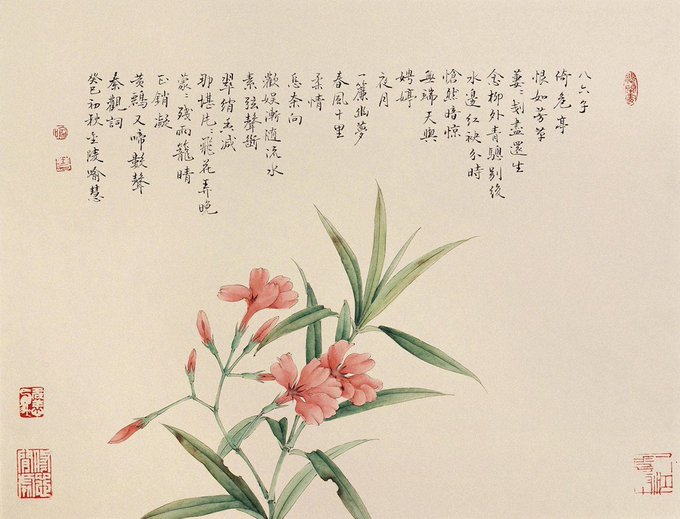 八六子
倚危亭
恨如芳草
萋〻剗盡還生
念柳外青驄別後
水邊紅袂分時
愴然暗驚
無端天與
娉婷
夜月
一簾幽夢
春風十里
柔情
怎奈向
歡娛漸隨流水
素弦聲斷
翠綃香減
那堪片〻飛花弄晚
濛〻殘雨籠晴
正銷凝
黃鸝又啼數聲
秦觀詞
癸巳初秋金陵喻慧